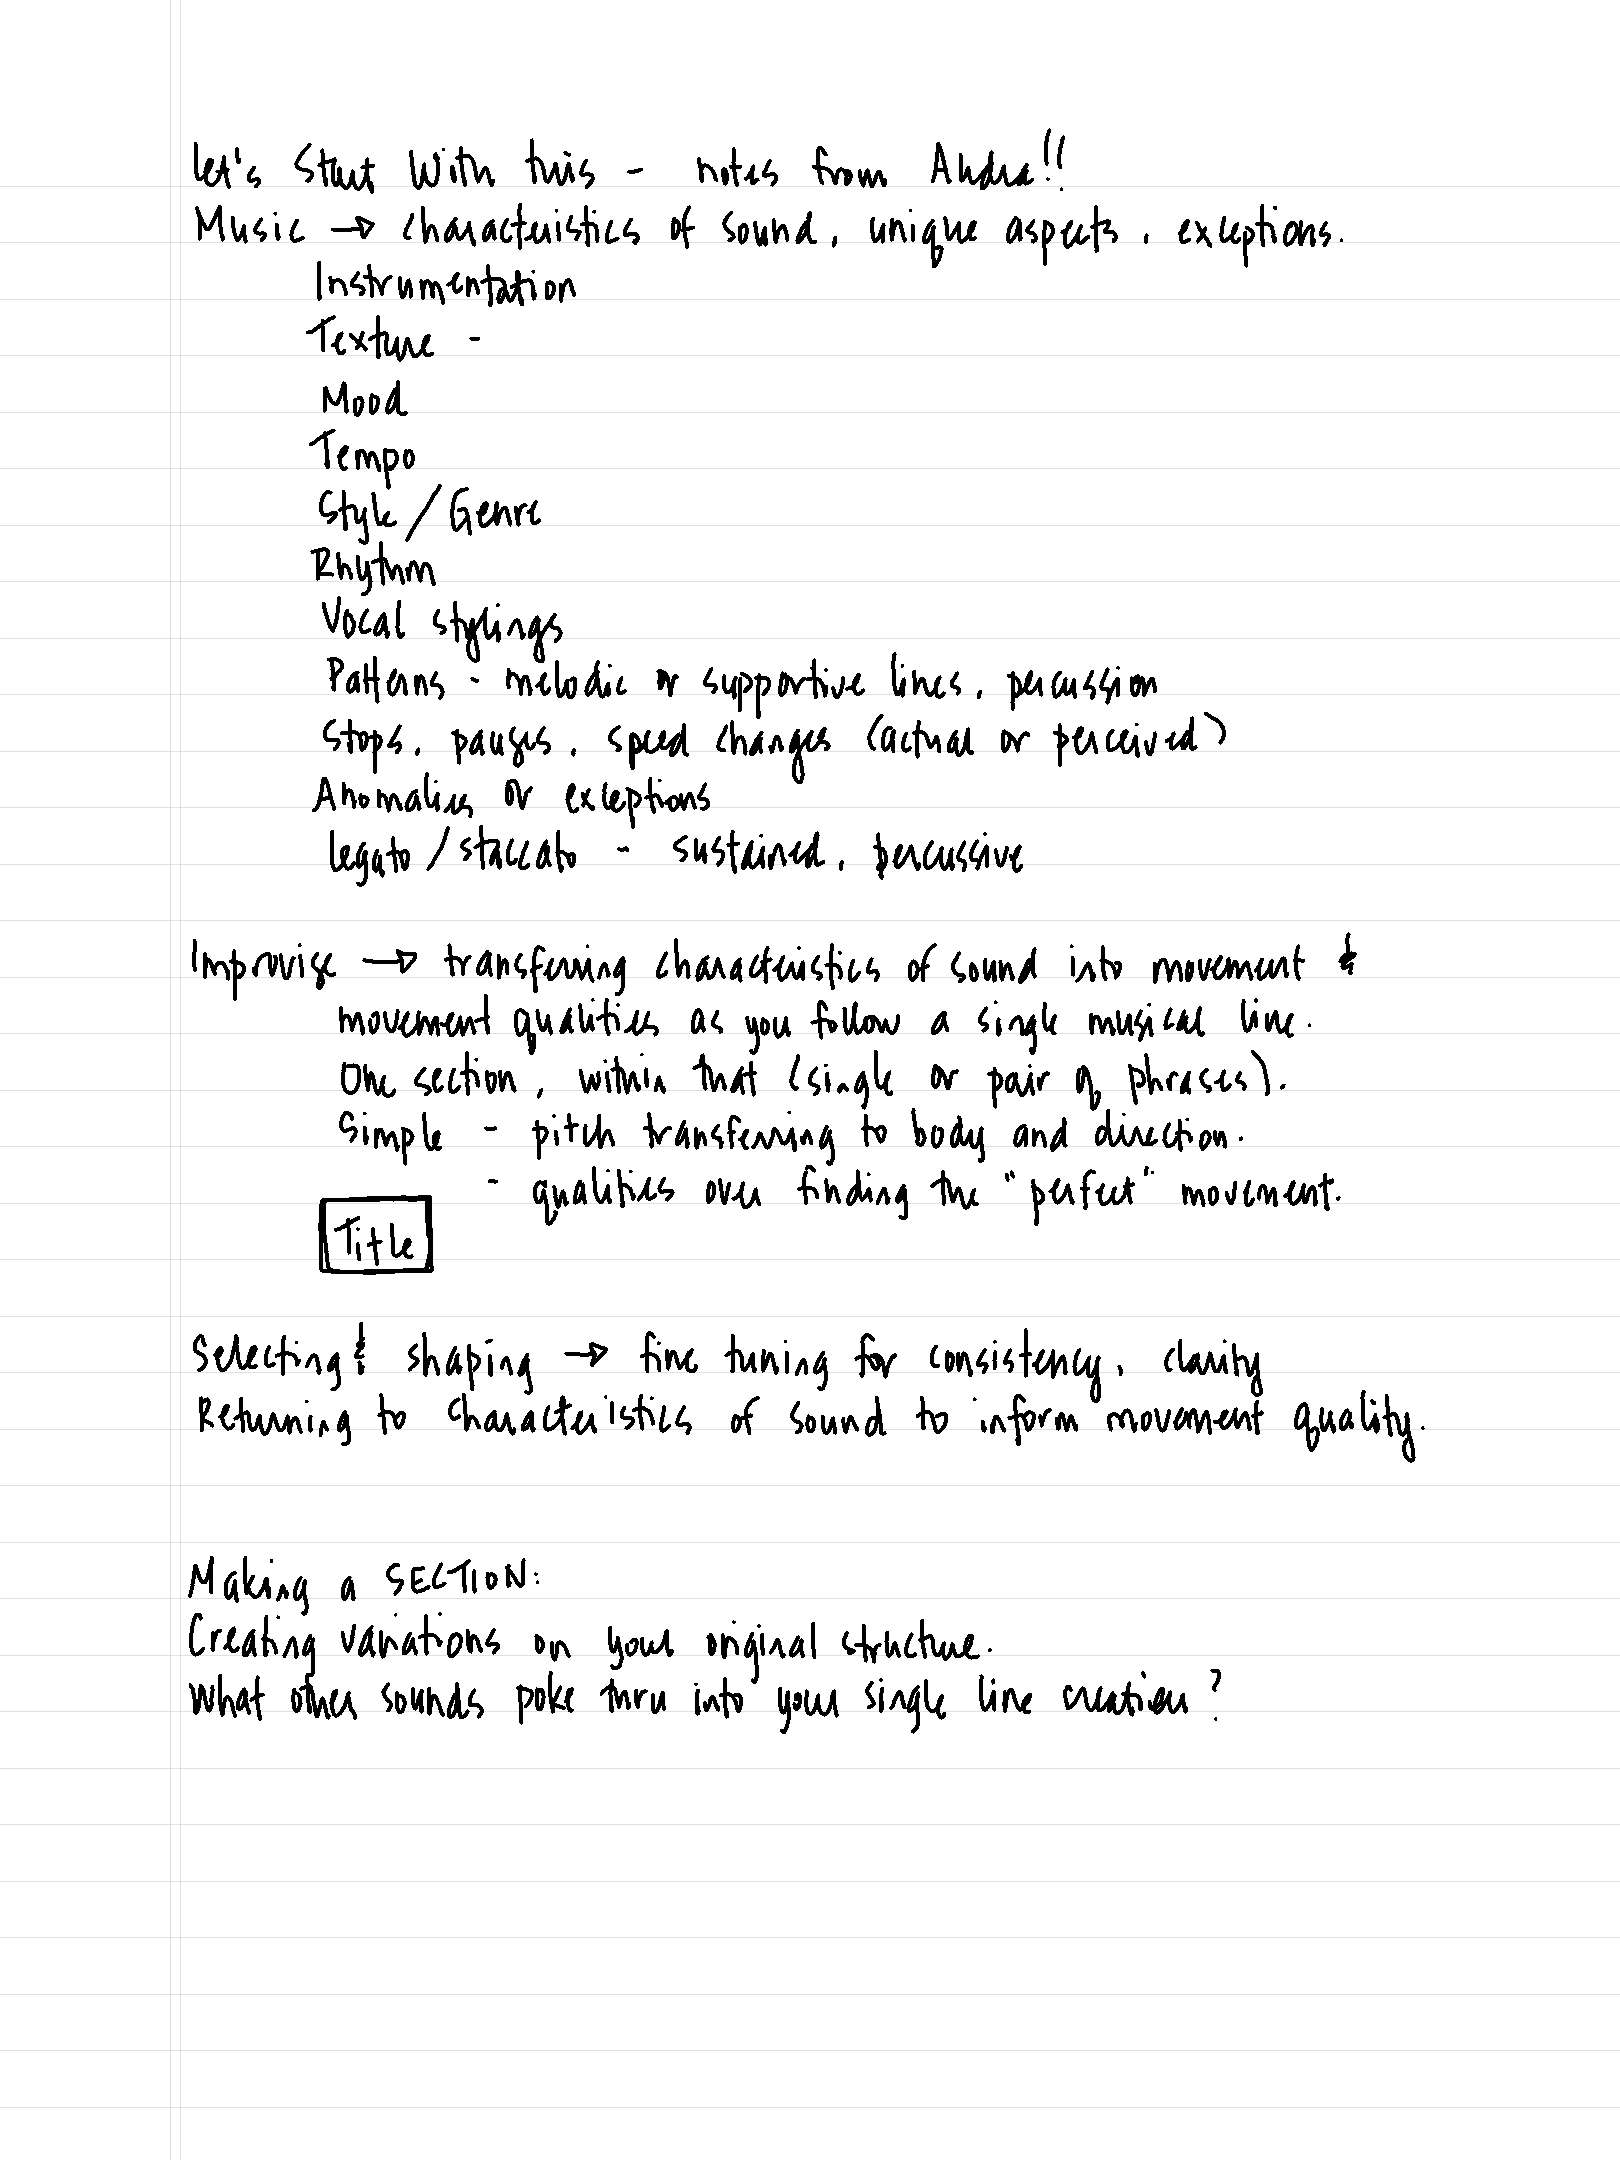 Let's Start With this - notes from Andra!!
Music → characteristics of sound, unique aspects, exceptions.
Instrumentation
Texture -
Mood
Tempo
Style / Genre
Rhythm
Vocal stylings
Patterns - melodic or supportive lines, percussion
Stops, pauses, speed changes (actual or perceived)
Anomalies or exceptions
legato / staccato - sustained, percussive
Improvise → transferring characteristics of sound into movement &
movement qualities as you follow a single musical line.
One section, within that (single or pair of phrases).
Simple - pitch transferring to body and direction.
- qualities over finding the "perfect" movement.
Title
Selecting & shaping → fine tuning for consistency, clarity
Returning to characteristics of sound to inform movement quality.
Making a SECTION:
Creating variations on your original structure.
What other sounds poke thru into your single line creation?